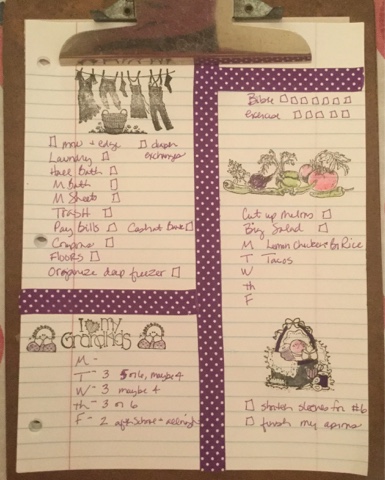 mow + edge
Laundry
Hall Bath
M Bath
M Sheets
TRASH
Pay bills
Compare
Floors
Organize deep freezer
Bible
exercise
Cut up melons
Big Salad
M Lemon Chicken Rice
T Tacos
W
Th
F
I my
Grandkids
M -
T - 3 5 or 6, maybe 4
W - 3 maybe 4
th - 3 or 6
F - 2 after school -
shorten sleeves for #6
finish my aprons